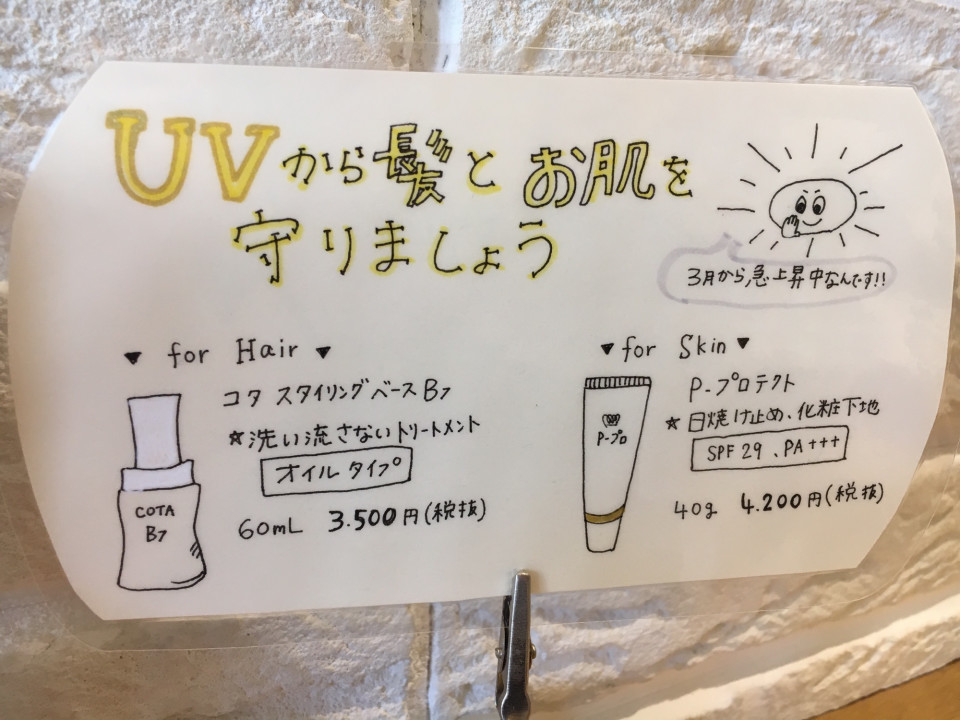 UVから髪とお肌を
守りましょう
3月から急上昇中なんです!!
▼ for Hair ▼
コタ スタイリングベース B7
★洗い流さないトリートメント
オイルタイプ
60mL 3.500円(税抜)
COTA
B7
▼ for Skin ▼
P-プロテクト
★日焼け止め、化粧下地
SPF 29、PA+++
40g 4.200円(税抜)
P-プロ